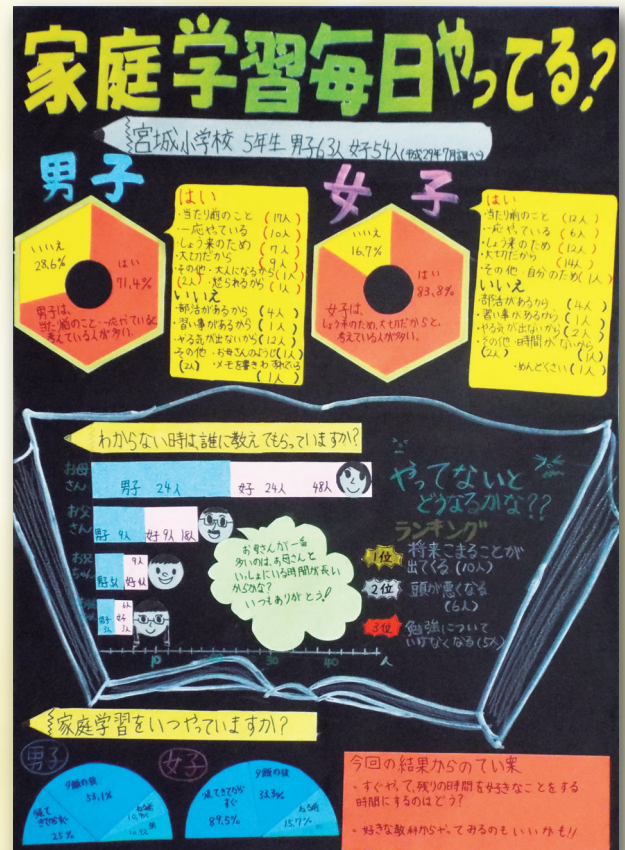 家庭学習毎日やってる?
宮城小学校 5年生 男子63人 女子54人(平成29年7月調べ)
男子
いいえ
28.6%
はい
71.4%
男子は、
当たり前のこと・一応やっていると
考えている人が多い。
はい
・当たり前のこと (17人)
・一応やっている (10人)
・しょう来のため (7人)
・大切だから (9人)
・その他・大人になるから(1人)
(2人)・怒られるから(1人)
いいえ
・部活があるから (4人)
・習い事があるから (1人)
・やる気が出ないから(12人)
・その他・お母さんのようじ(1人)
(2人) ・メモを書きわすれている
(1人)
女子
いいえ
16.7%
はい
83.8%
女子は、
しょう来のため、大切だからと、
考えている人が多い。
はい
・当たり前のこと (12人)
・一応やっている (6人)
・しょう来のため (12人)
・大切だから (14人)
・その他・自分のため(1人)
いいえ
・部活があるから (4人)
・習い事があるから (1人)
・やる気が出ないから (2人)
・その他・時間がないから
(2人) (1人)
・めんどくさい(1人)
わからない時は誰に教えてもらっていますか?
お母
さん
男子 24人 女子 24人 48人
お父
さん
男子 9人 女子 9人 18人
お兄
ちゃん
9人
男子5人 女子4人
6人
男子 女子
3人 3人
10 30 40 人
お母さんが一番
多いのは、お母さんと
いっしょにいる時間が長い
からかな?
いつもありがとう!
やってないと
どうなるかな??
ランキング
1位 将来こまることが
出てくる(10人)
2位 頭が悪くなる
(6人)
3位 勉強について
いけなくなる(5人)
家庭学習をいつやっていますか?
男子
夕飯の後
53.1%
帰って
きてからすぐ
25%
女子
帰ってきてから
すぐ
89.5%
夕飯の後
33.3%
ねる前
15.7%
今回の結果からのてい案
・すぐやって、残りの時間を好きなことをする
時間にするのはどう?
・好きな教科からやってみるのもいいかも!!